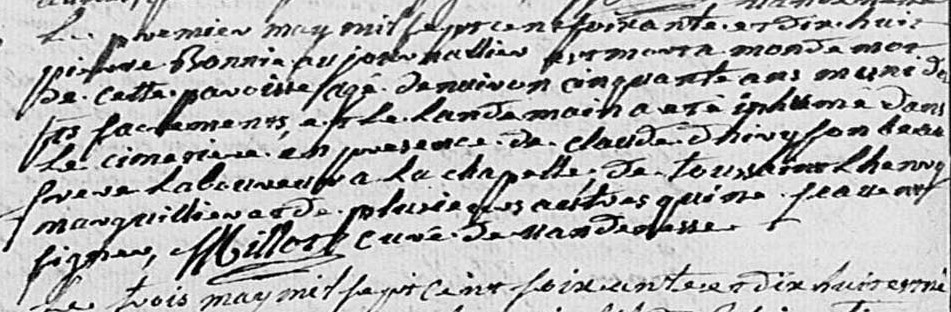 Le premier may mil sept cent soixante et dix huit
pierre Bonnie au journallier est mort a monde mot
de cette paroisse agé denviron cinquante ans muni de
ses sacrements, et le landemain a eté inhumé dans
le cimetiere en presence de claude dhiry son beau
frere laboureur a la chapelle de toussaint Lhenry
marguillier et de plusieurs autres qui ne scavent
signer, Millot curé de vandenesse
Le trois may mil sept cent soixante et dix huit est né